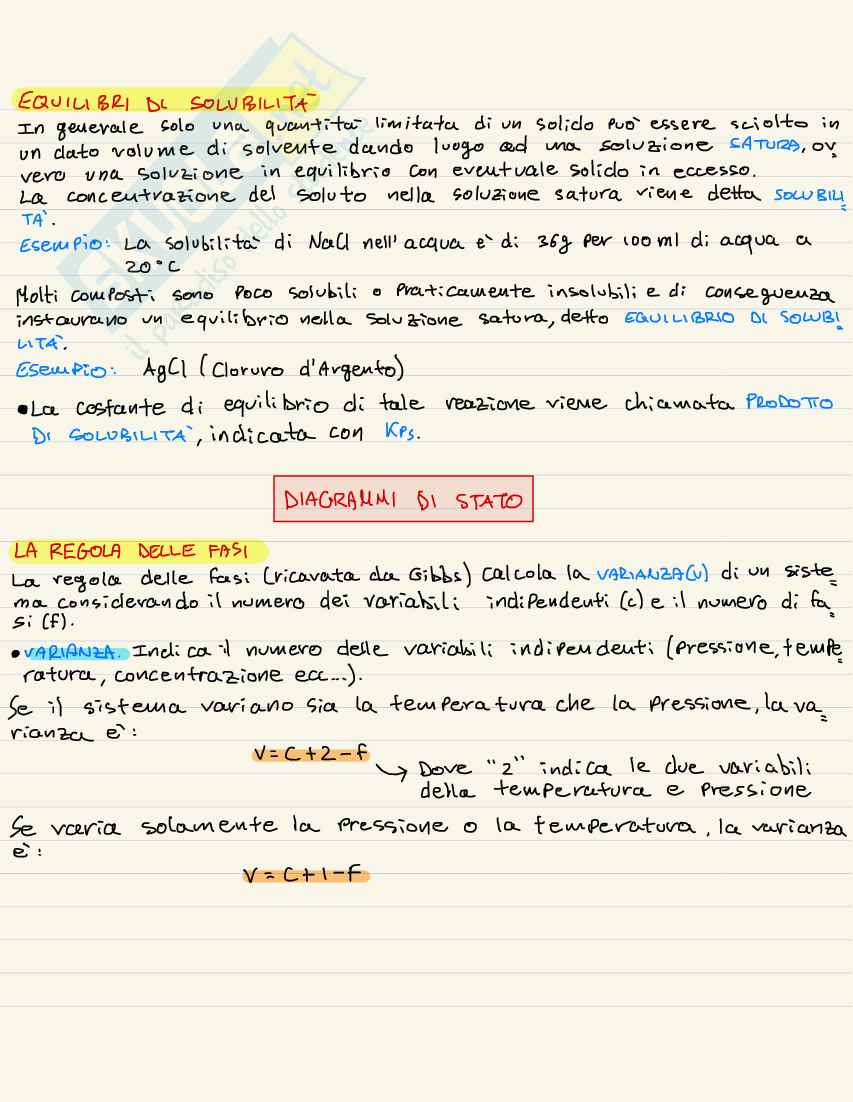 EQUILIBRI DI SOLUBILITÀ
In generale solo una quantità limitata di un solido può essere sciolto in
un dato volume di solvente dando luogo ad una soluzione SATURA, ov
vero una soluzione in equilibrio con eventuale solido in eccesso.
La concentrazione del soluto nella soluzione satura viene detta SOLUBILI
TÀ.
Esempio: La solubilità di NaCl nell'acqua è di 36g per 100ml di acqua a
20°C
Molti composti sono poco solubili o praticamente insolubili e di conseguenza
instaurano un equilibrio nella soluzione satura, detto EQUILIBRIO DI SOLUBI
LITÀ.
Esempio: AgCl (Cloruro d'Argento)
•La costante di equilibrio di tale reazione viene chiamata PRODOTTO
DI SOLUBILITÀ, indicata con Kps.
DIAGRAMMI DI STATO
LA REGOLA DELLE FASI
La regola delle fasi (ricavata da Gibbs) calcola la VARIANZA(V) di un siste
ma considerando il numero dei variabili indipendenti (c) e il numero di fa
si (f).
• VARIANZA. Indica il numero delle variabili indipendenti (pressione, tempe
ratura, concentrazione ecc...).
Se il sistema variano sia la temperatura che la pressione, la va
rianza è:
V = C + 2 - f
→ Dove "2" indica le due variabili
della temperatura e pressione
Se varia solamente la pressione o la temperatura, la varianza
è:
V = C + 1 - F
SKUOLA.net
il paradiso dello studente